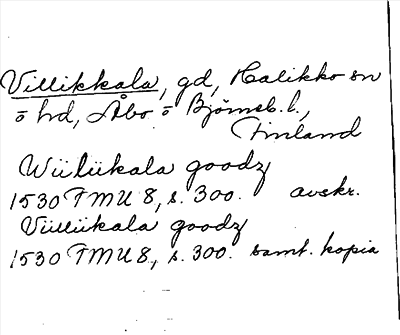 Villikkala, gd, Halikko sn
o hd, Åbo o Björneb. l.,
Finland
Wiilükala goodz
1530 FMU 8, s. 300. avskr.
Viiliikala goodz
1530 FMU 8, s. 300. samt. kopia